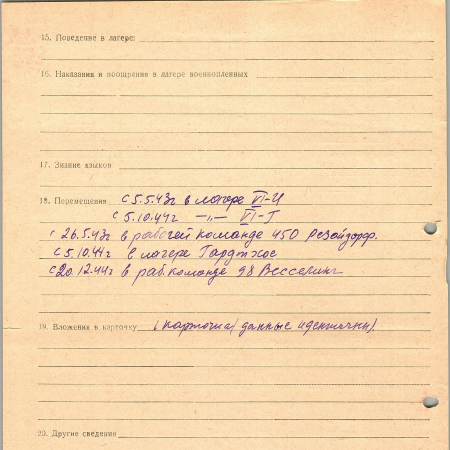 15. Поведение в лагере:
16. Наказания и поощрения в лагере военнопленных
17. Знание языков
18. Перемещения с 5.5.43г в лагере VI-И
с 5.10.44г —„— VI-Г
с 26.5.43г в рабочей команде 450 Резйдорф.
с 5.10.44г в лагере
с 20.12.44г в раб. команде 98 Весселинг
19. Вложения в карточку 1 карточка (данные идентичны)
20. Другие сведения